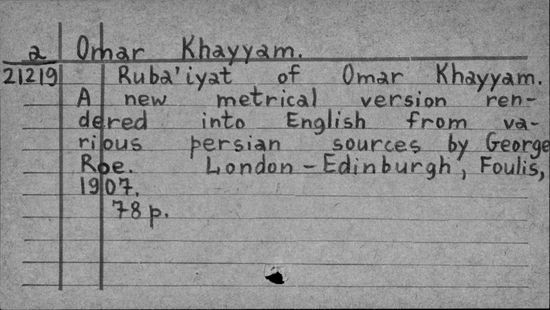 a Omar Khayyam.
21219 Ruba'iyat of Omar Khayyam.
A new metrical version ren-
dered into English from va-
rious persian sources by George
Roe. London - Edinburgh, Foulis,
1907.
78 p.